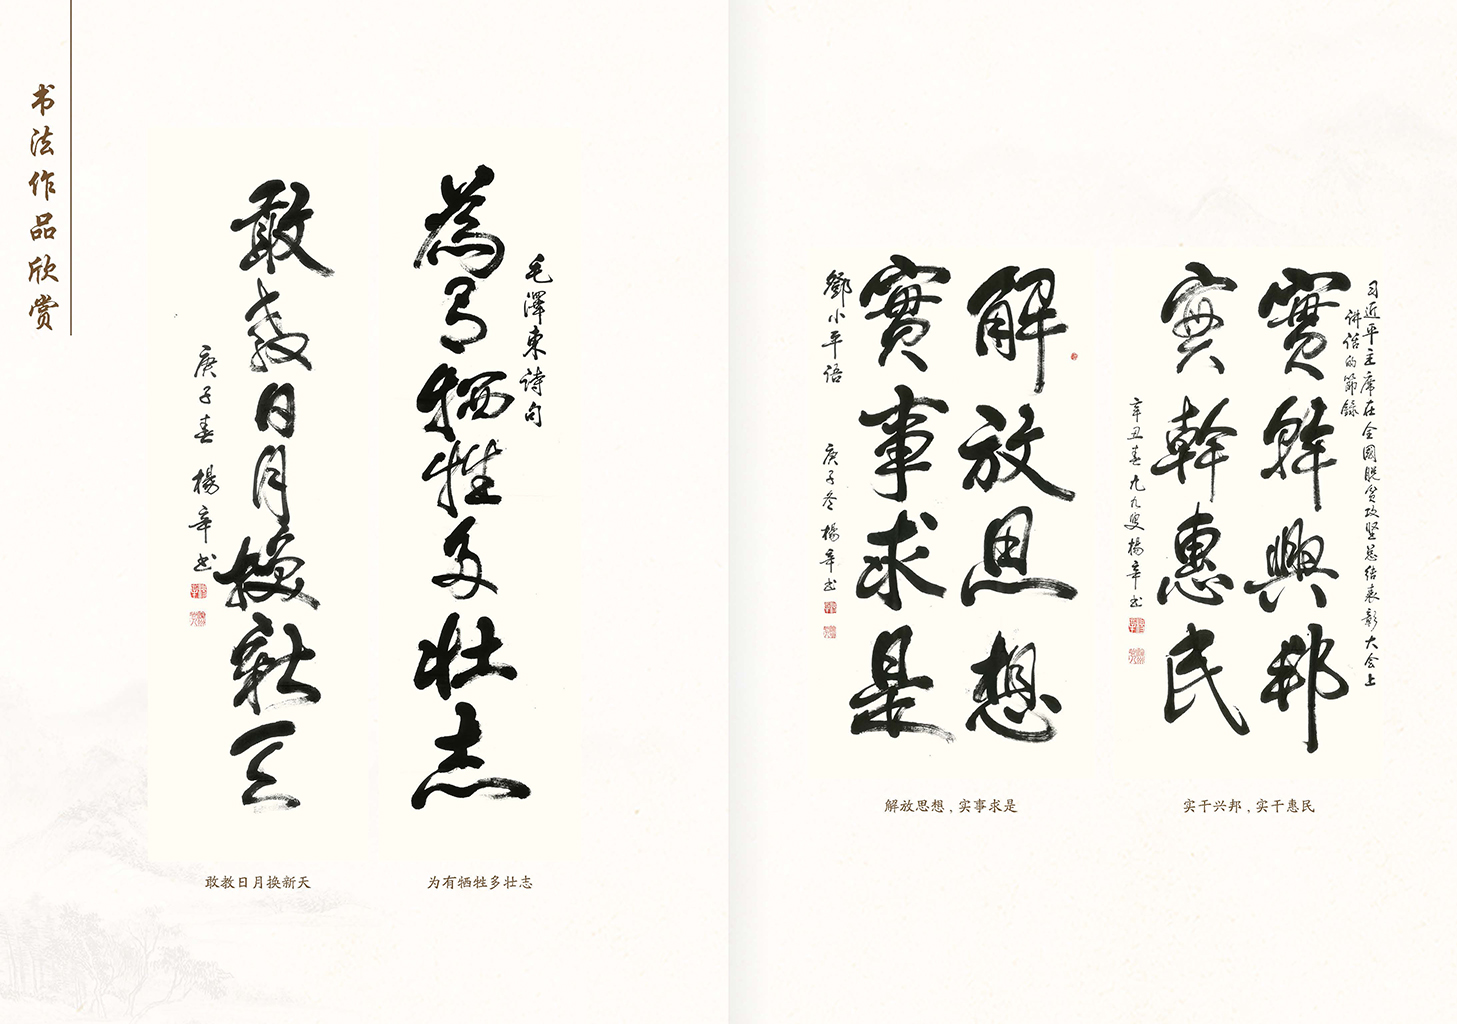 书法作品欣赏
毛澤東詩句
為有牺牲多壮志
敢教日月換新天
庚子春 楊辛书
敢教日月换新天
为有牺牲多壮志
解放思想
實事求是
鄧小平语
庚子冬 楊辛书
解放思想，实事求是
习近平主席在全國脱贫攻坚总结表彰大会上
讲话的節録
實幹興邦
實幹惠民
辛丑春九九叟楊辛书
实干兴邦，实干惠民